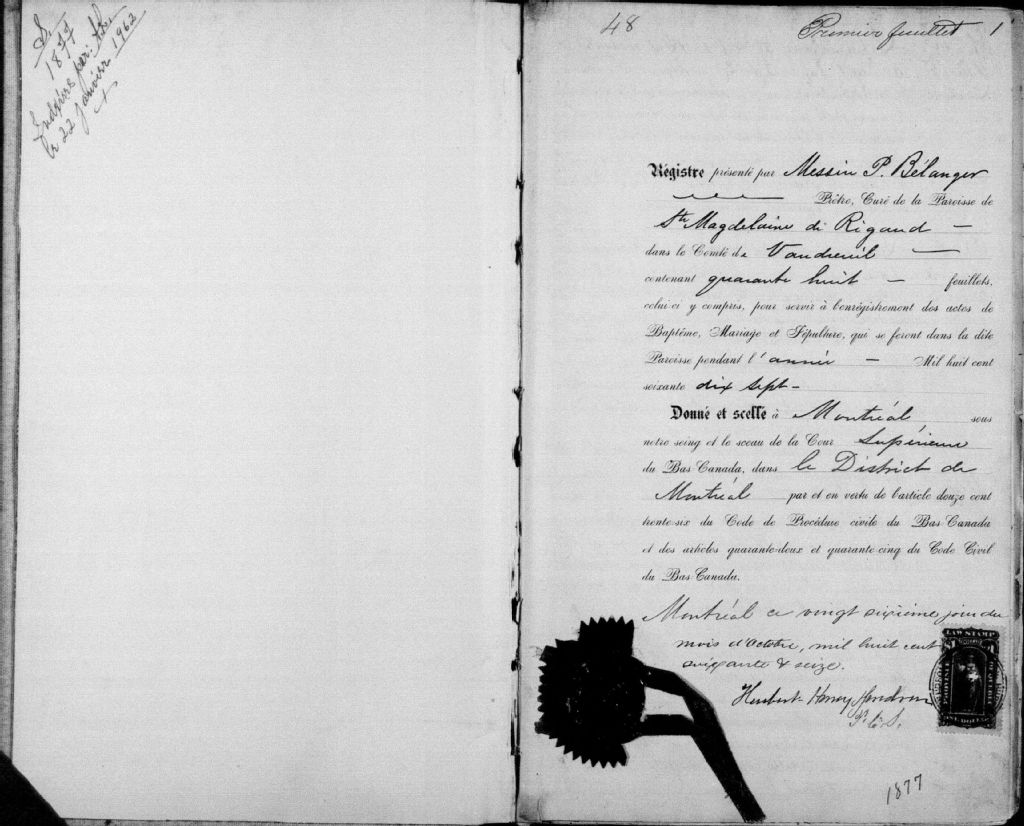 S.
1877
par:
le 22 janvier 1962
48
Premier feuillet 1
Régistre présenté par Messire P. Bélanger
Prêtre, Curé de la Paroisse de
Ste Magdelaine de Rigaud
dans le Comté de Vaudreuil
contenant quarante huit feuillets,
celui-ci y compris, pour servir à l'enrégistrement des actes de
Baptême, Mariage et Sépulture, qui se feront dans la dite
Paroisse pendant l'année Mil huit cent
soixante dix sept
Donné et scellé à Montréal sous
notre seing et le sceau de la Cour Supérieure
du Bas-Canada, dans le District de
Montréal par et en vertu de l'article douze cent
trente-six du Code de Procédure civile du Bas-Canada
et des articles quarante-deux et quarante-cinq du Code Civil
du Bas-Canada.
Montréal ce vingt sixième jour du
mois d'Octobre, mil huit cent
soixante & seize.
Hubert Honey Gendron
P. C. S.
LAW STAMP
1877